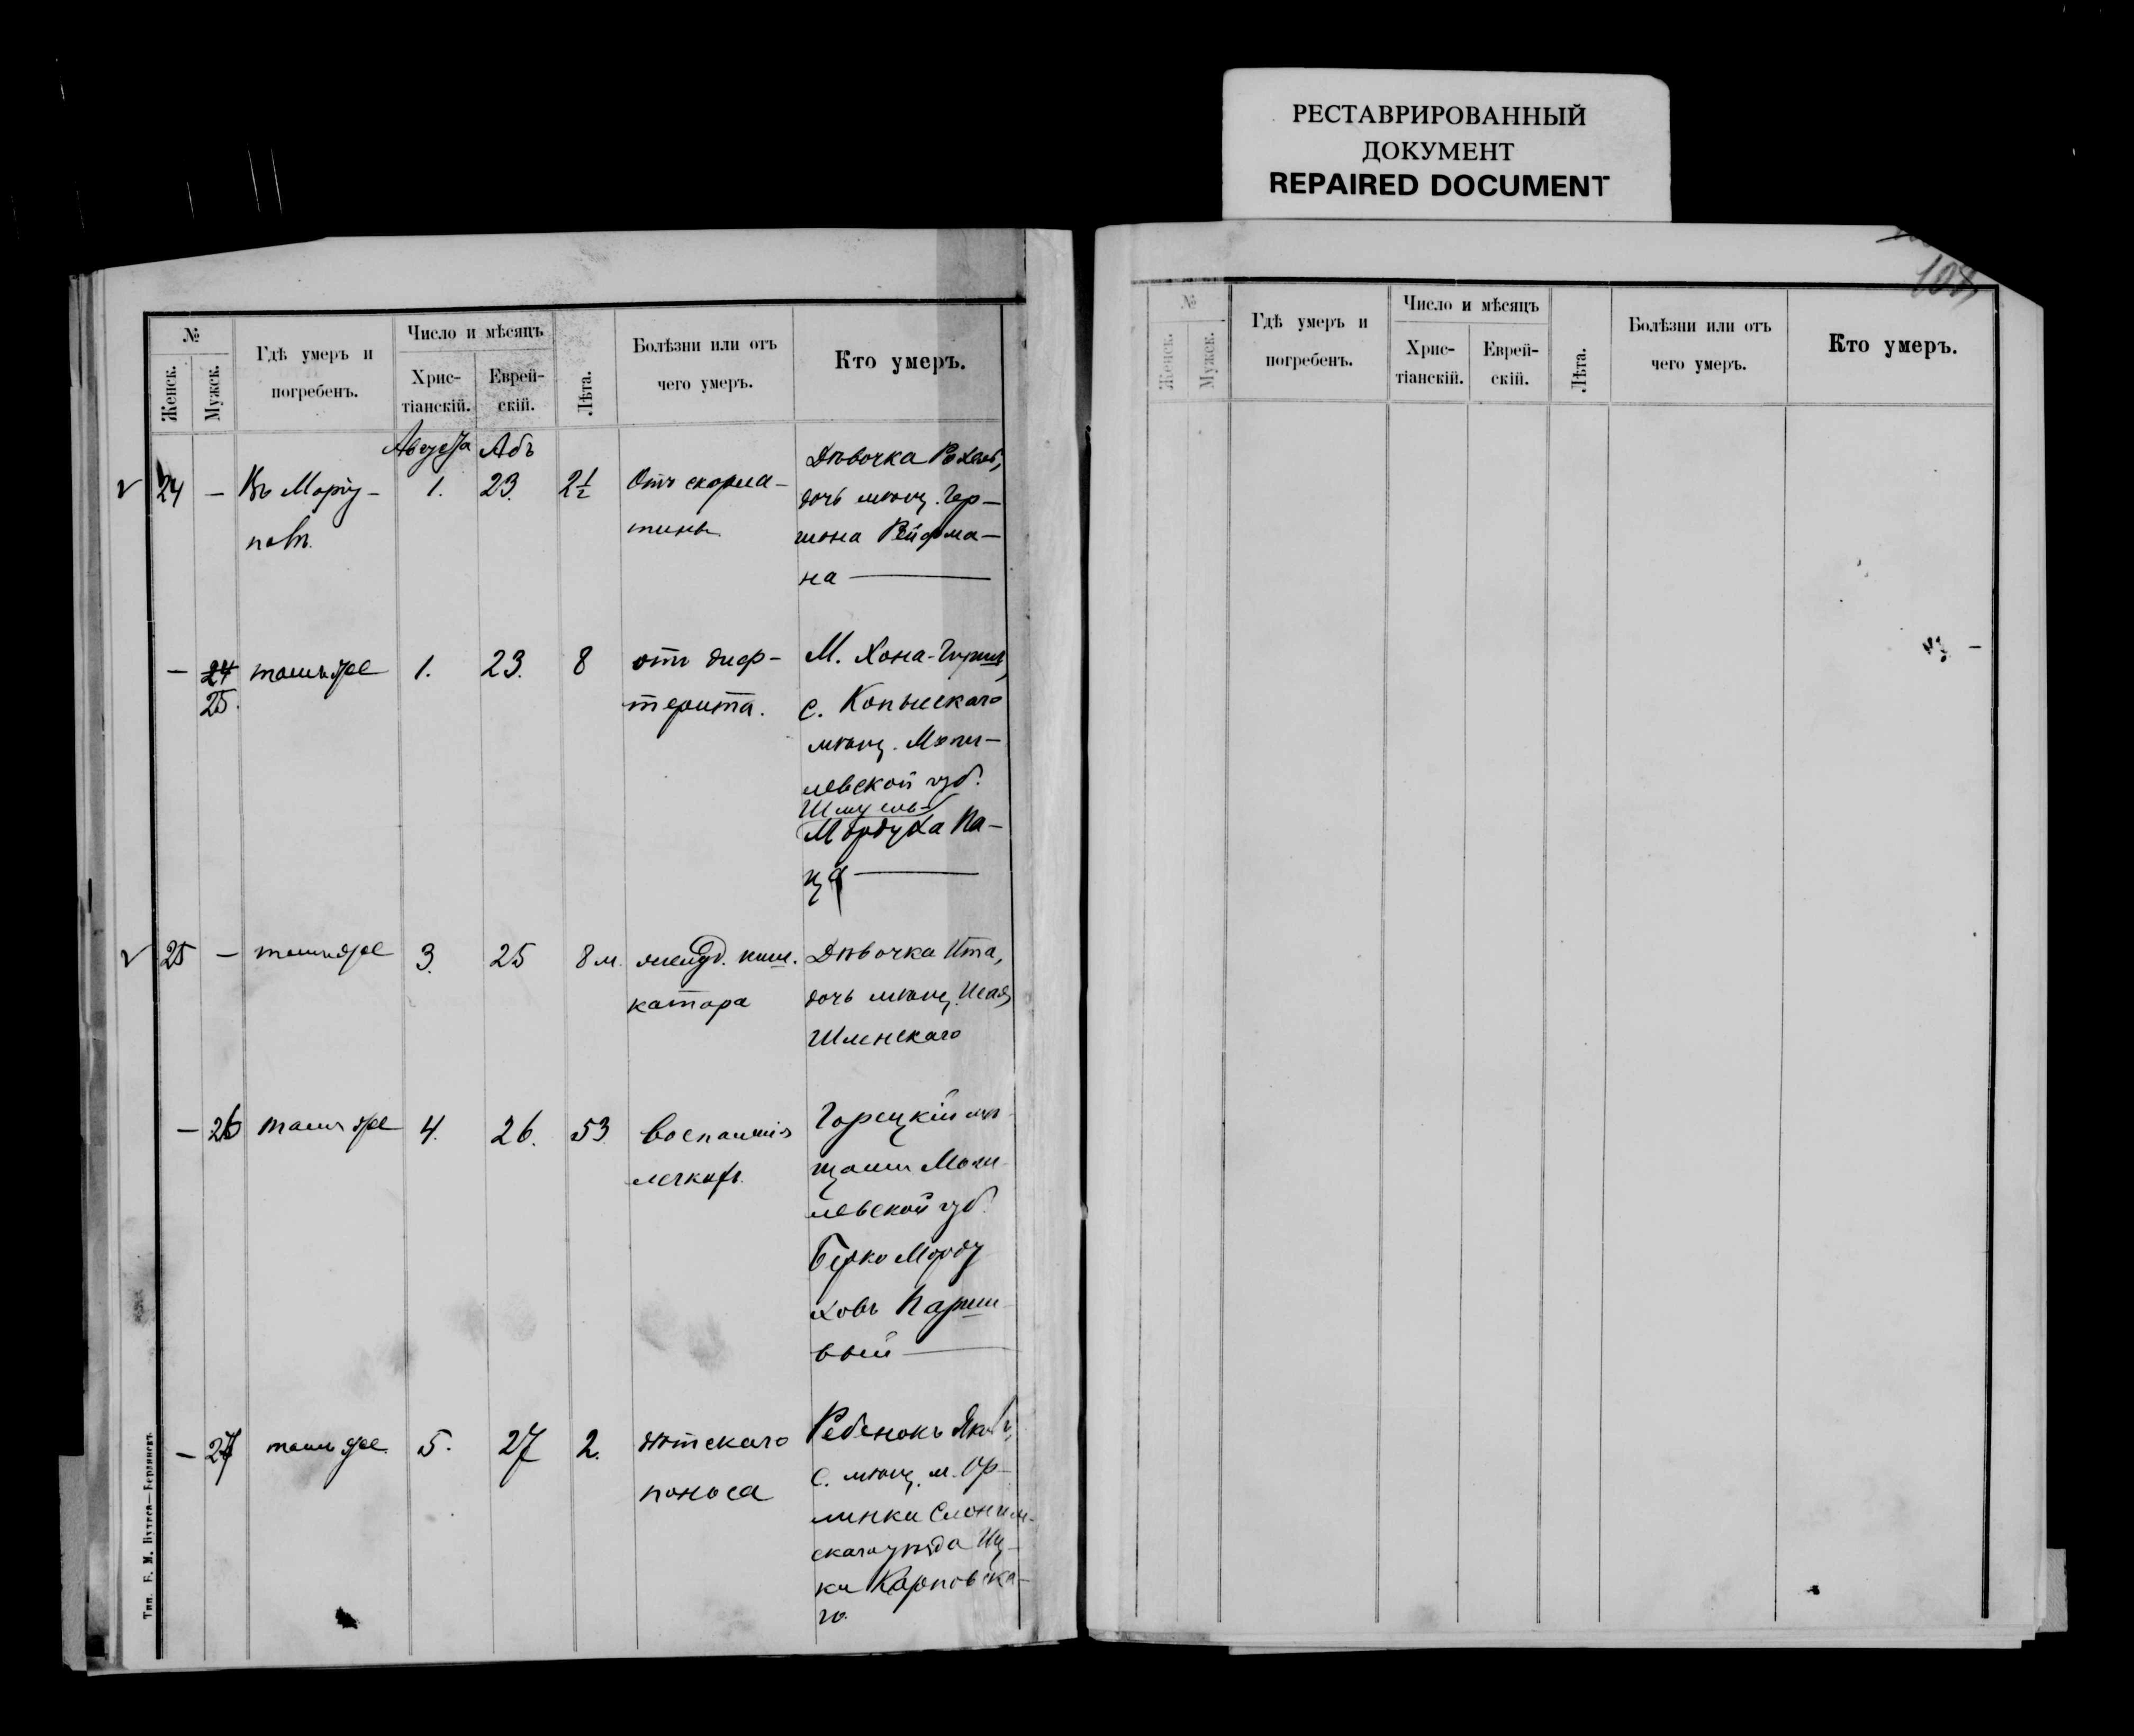 РЕСТАВРИРОВАННЫЙ
ДОКУМЕНТ
REPAIRED DOCUMENT
№
Женск.
Мужск.
Гдѣ умеръ и
погребенъ.
Число и мѣсяцъ
Хрис-
тіанскій.
Еврей-
скій.
Лѣта.
Болѣзни или отъ
чего умеръ.
Кто умеръ.
Августа Абъ
24 — Въ Маріу-
полѣ.
1. 23. 2½
Отъ скарла-
тины
Дѣвочка Рохель,
дочь мѣщ. Гер-
шона Рейфма-
на —
— 24
25.
тамъ же 1. 23. 8
отъ диф-
терита.
М. Хона-Гирша,
с. Копысскаго
мѣщ. Моги-
левской губ.
Шмуель-
Мордуха Ка-
ца —
25 — тамъ же 3. 25 8 м.
желуд. киш.
катара
Дѣвочка Ита,
дочь мѣщ. Исая
Шленскаго
— 26 тамъ же 4. 26. 53
воспаленія
легкихъ
Горецкій мѣ-
щанин Моги-
левской губ.
Берко Морду
ховъ Парши-
вый —
— 27 тамъ же 5. 27 2.
дѣтскаго
поноса
Ребенокъ Яковъ,
с. мѣщ. м. Ор-
линки Слоним-
скаго уѣзда Иц-
ки Карповска-
го.
Тип. Е. М.
108
№
Женск.
Мужск.
Гдѣ умеръ и
погребенъ.
Число и мѣсяцъ
Хрис-
тіанскій.
Еврей-
скій.
Лѣта.
Болѣзни или отъ
чего умеръ.
Кто умеръ.